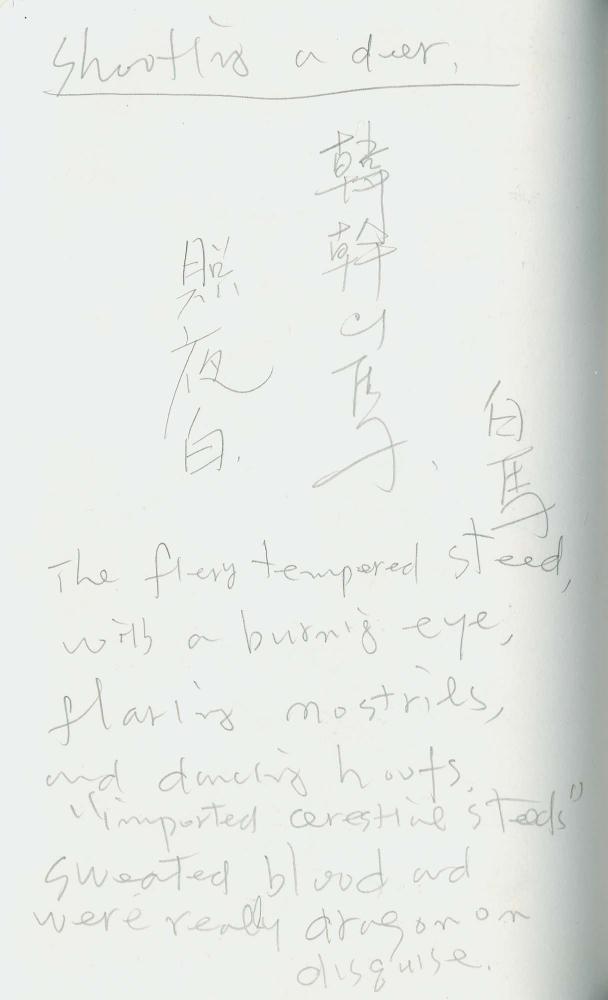 Shooting a deer.
韓幹的馬.
照夜白.
白馬
The fiery tempered steed,
with a burning eye,
flaring nostrils,
and dancing hoofs.
"imported cerestial steeds"
sweated blood and
were really dragon on
disguise.